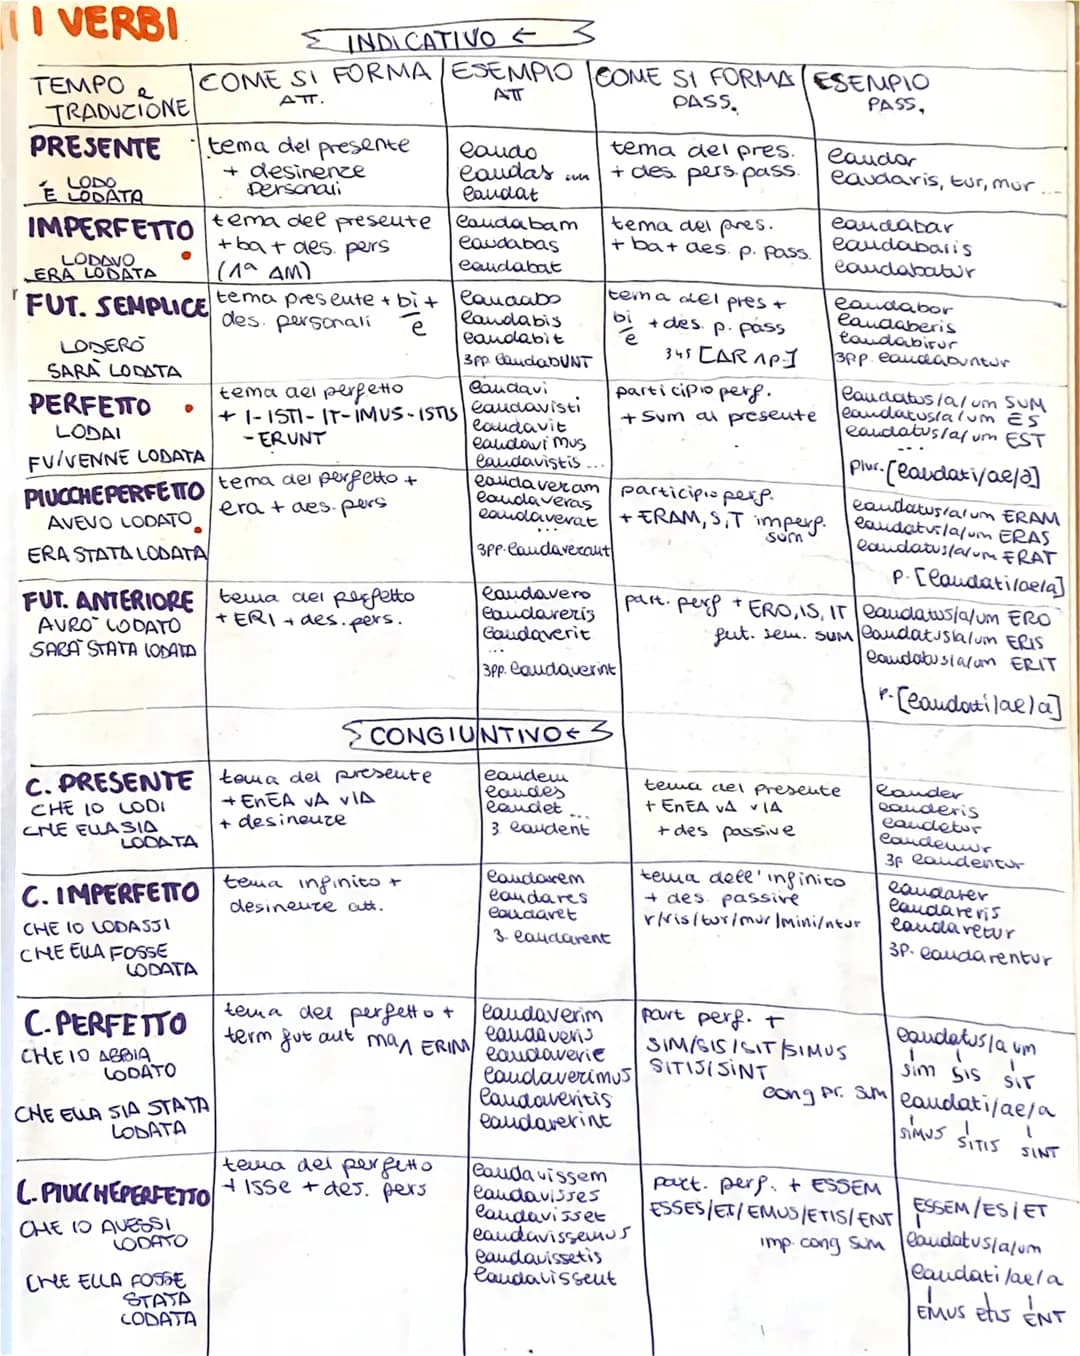 I VERBI
INDICATIVO ←
TEMPO e TRADUZIONE
COME SI FORMA ATT.
ESEMPIO ATT
COME SI FORMA PASS.
ESEMPIO PASS.
PRESENTE
LODO
È LODATA
tema del presente
+ desinenze
personali
laudo
laudas
laudat
tema del pres.
+ des. pers. pass.
laudor
laudaris, tur, mur ...
IMPERFETTO
LODAVO
ERA LODATA
tema del presente
+ ba + des. pers
(1ª AM)
laudabam
laudabas
laudabat
tema del pres.
+ ba + des. p. pass.
laudabar
laudabaris
laudabatur
FUT. SEMPLICE
LODERÒ
SARÀ LODATA
tema presente + bi +
des. personali e
laudabo
laudabis
laudabit
3pp laudabUNT
tema del pres +
bi + des. p. pass
e
laudabor
laudaberis
laudabitur
3pp. laudabuntur
PERFETTO
LODAI
FU/VENNE LODATA
tema del perfetto
+ I-ISTI-IT-IMUS-ISTIS
- ERUNT
laudavi
laudavisti
laudavit
laudavimus
laudavistis ...
participio perf.
+ sum al presente
laudatus/a/um SUM
laudatus/a/um ES
laudatus/a/um EST
...
plur. [laudati/ae/a]
PIUCCHEPERFETTO
AVEVO LODATO
ERA STATA LODATA
tema del perfetto +
era + des. pers
laudaveram
laudaveras
laudaverat
3pp. laudaverant
participio perf.
+ ERAM, S, T imperf.
sum
laudatus/a/um ERAM
laudatus/a/um ERAS
laudatus/a/um ERAT
p. [laudati/ae/a]
FUT. ANTERIORE
AVRÒ LODATO
SARÀ STATA LODATA
tema del perfetto
+ ERI + des. pers.
laudavero
laudaveris
laudaverit
...
3pp. laudaverint
part. perf + ERO, IS, IT
fut. sem. SUM
laudatus/a/um ERO
laudatus/a/um ERIS
laudatus/a/um ERIT
[laudati/ae/a]
CONGIUNTIVO ←
C. PRESENTE
CHE IO LODI
CHE ELLA SIA
LODATA
tema del presente
+ EnEA VA VIA
+ desinenze
laudem
laudes
laudet ...
3 laudent
tema del presente
+ EnEA VA VIA
+ des passive
lauder
lauderis
laudetur
laudemur
3p laudentur
C. IMPERFETTO
CHE IO LODASSI
CHE ELLA FOSSE
LODATA
tema infinito +
desinenze att.
laudarem
laudares
laudaret
3. laudarent
tema dell'infinito
+ des. passive
r/ris/tur/mur/mini/ntur
laudarer
laudareris
laudaretur
3P. laudarentur
C. PERFETTO
CHE IO ABBIA
LODATO
CHE ELLA SIA STATA
LODATA
tema del perfetto +
term fut ant ma ERIM
laudaverim
laudaveris
laudaverit
laudaverimus
laudaveritis
laudaverint
part perf. +
SIM/SIS/SIT/SIMUS
SITIS/SINT
cong pr. sum
laudatus/a um
sim sis sit
laudati/ae/a
SIMUS SITIS SINT
C. PIUCCHEPERFETTO
CHE IO AVESSI
LODATO
CHE ELLA FOSSE
STATA
LODATA
tema del perfetto
+ ISSE + des. pers
laudavissem
laudavisses
laudavisset
laudavissemus
laudavissetis
laudavissent
part. perf. + ESSEM
ESSES/ET/EMUS/ETIS/ENT
imp. cong sum
ESSEM/ES/ET
laudatus/a/um
laudati/ae/a
EMUS etis ENT